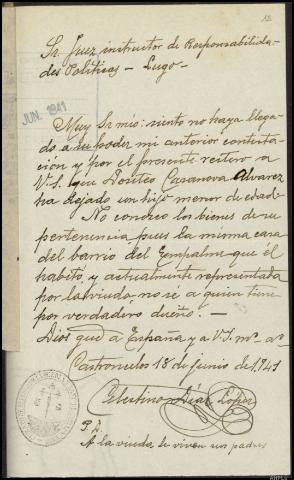 Sr. Juez instructor de Responsabilida-
des Políticas – Lugo –
JUN. 1941
Muy Sr mío: siento no haya llega-
do a su poder mi anterior contesta-
ción y por el presente reitero a
V.S. que Dositeo Casanova Alvarez
ha dejado un hijo menor de edad.
No conozco los bienes de su
pertenencia pues la misma casa
del barrio del Empalme que él
habitó, y actualmente representada
por la viuda, no sé a quien tiene
por verdadero dueño. –
Dios gue a España y a V.S. ms as
Castroverde 18 de junio de 1.941
Celestino Díaz López
P.D.
A la viuda le viven sus padres